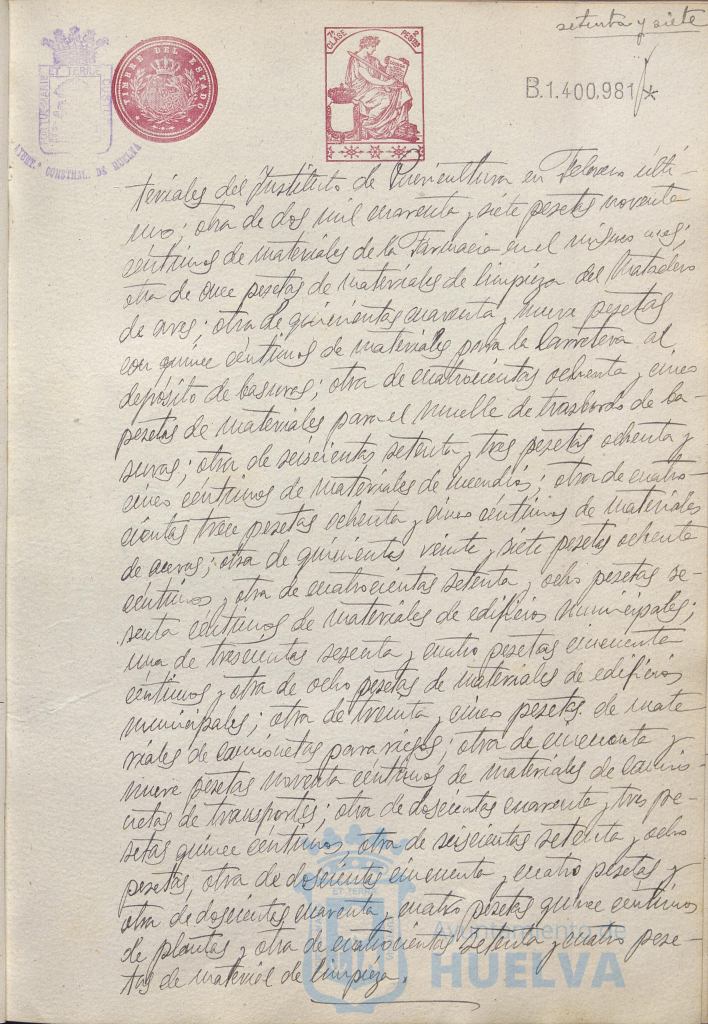 setenta y siete
PORTUS MARIS
ET TERRAE CUSTODIA
AYUNT.º CONSTNAL. DE HUELVA
TIMBRE DEL ESTADO
7ª CLASE
2 PESETAS
B.1.400.981 *
teriales del Instituto de Puericultura en Febrero últi-
mo; otra de dos mil cuarenta y siete pesetas noventa
céntimos de materiales de la Farmacia en el mismo mes;
otra de once pesetas de materiales de limpieza del Matadero
de aves; otra de quinientas cuarenta y nueve pesetas
con quince céntimos de materiales para la Carretera al
depósito de basuras; otra de cuatrocientas ochenta y cinco
pesetas de materiales para el muelle de trasbordo de ba-
suras; otra de seiscientas setenta y tres pesetas ochenta y
cinco céntimos de materiales de incendios; otra de cuatro-
cientas trece pesetas ochenta y cinco céntimos de materiales
de aceras; otra de quinientas veinte y siete pesetas ochenta
céntimos y otra de cuatrocientas setenta y ocho pesetas se-
senta céntimos de materiales de edificios municipales;
una de trescientas sesenta y cuatro pesetas cincuenta
céntimos y otra de ocho pesetas de materiales de edificios
municipales; otra de treinta y cinco pesetas de mate
riales de camionetas para riegos; otra de cincuenta y
nueve pesetas noventa céntimos de materiales de camio-
netas de transportes; otra de doscientas cuarenta y tres pe-
setas quince céntimos, otra de seiscientas setenta y ocho
pesetas, otra de doscientas cincuenta y cuatro pesetas y
otra de doscientas cuarenta y cuatro pesetas quince céntimos
de plantas y otra de cuatrocientas setenta y cuatro pese-
tas de material de limpieza.
ET TERRAE
Ayuntamiento de
HUELVA